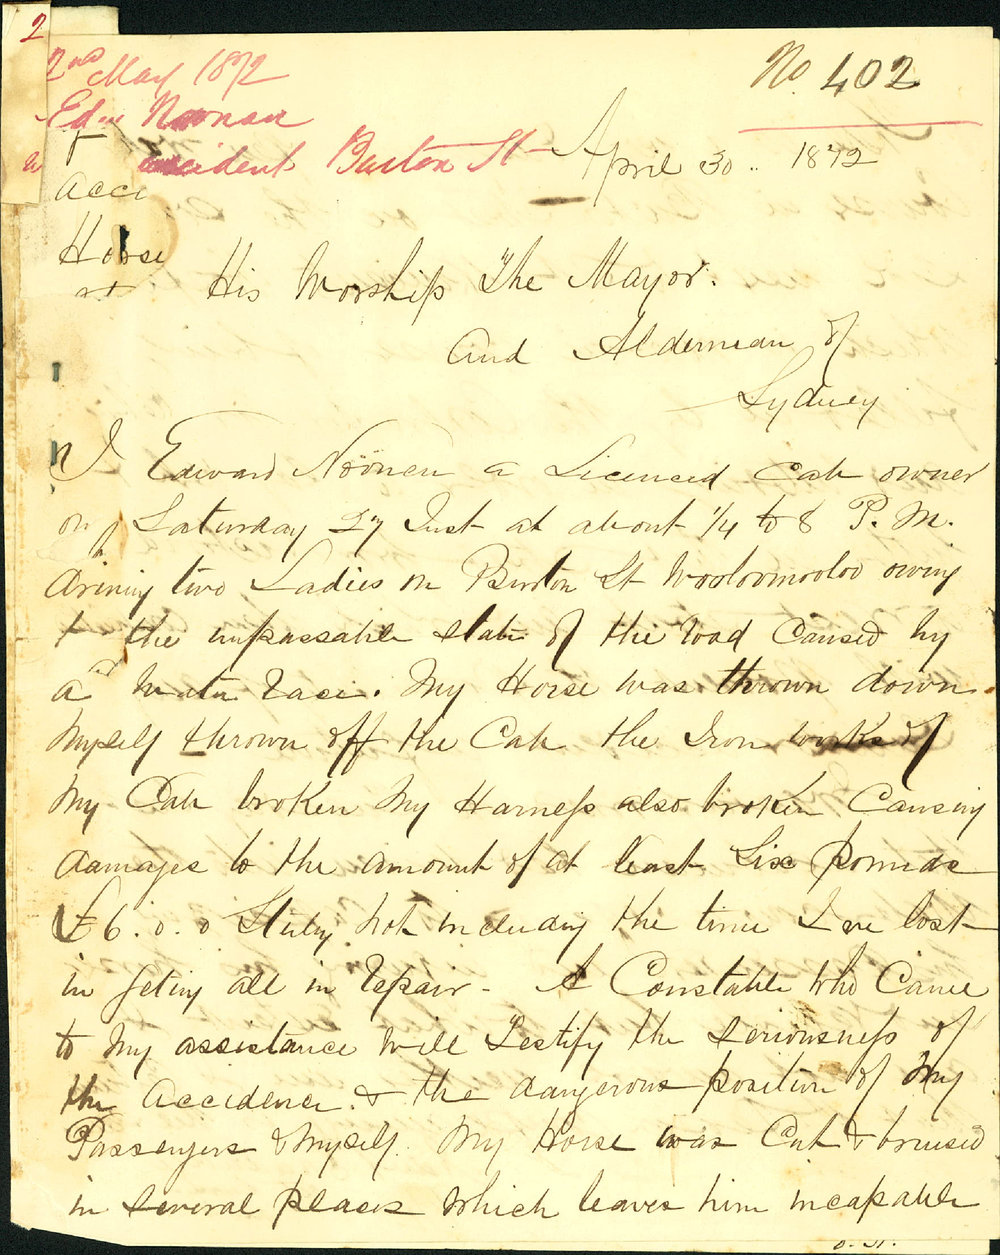 2
2nd May 1872
No. 402
Edw Noonan
accident Burton St
April 30.. 1872
acci
Horse
His Worship The Mayor.
and Alderman of
Sydney
I Edward Noonen a Licenced Cab owner
on Saturday 27 Inst at about 1/4 to 8 P.M.
driving two Ladies on Burton St Wooloomooloo owing
t the impassable state of the road Caused by
a Water race. My Horse was thrown down
Myself thrown off the Cab the Iron works of
My Cab broken My Harness also broken Causing
damages to the amount of at least Six pounds
£6.0.0 Sterling not including the time I ve lost
in geting all in repair - A Constable who Came
to My assistance will Testify the seriousness of
the accidence & the dangerous position of My
Passengers & Myself. My Horse was Cut & bruised
in several places which leaves him incapable